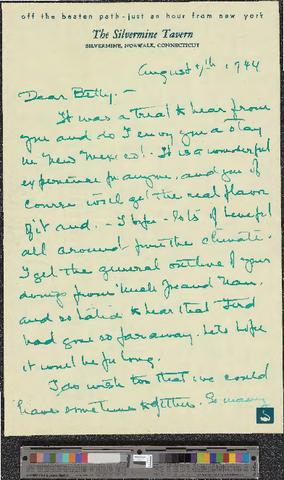 off the beaten path - just an hour from new york
The Silvermine Tavern
SILVERMINE, NORWALK, CONNECTICUT
August 9th 1944
Dear Betty. -
It was a treat to hear from
you and do I envy you a stay
in New Mexico! - It is a wonderful
experience for anyone, and you of
course will get the real flavor
of it and. - I hope - lots of benefit
all around from the climate.
I get the general outline of your
doings from
and so hated to hear that
had gone so far away. Let's hope
it won't be for long.
I do wish too that we could
have some time together. So many